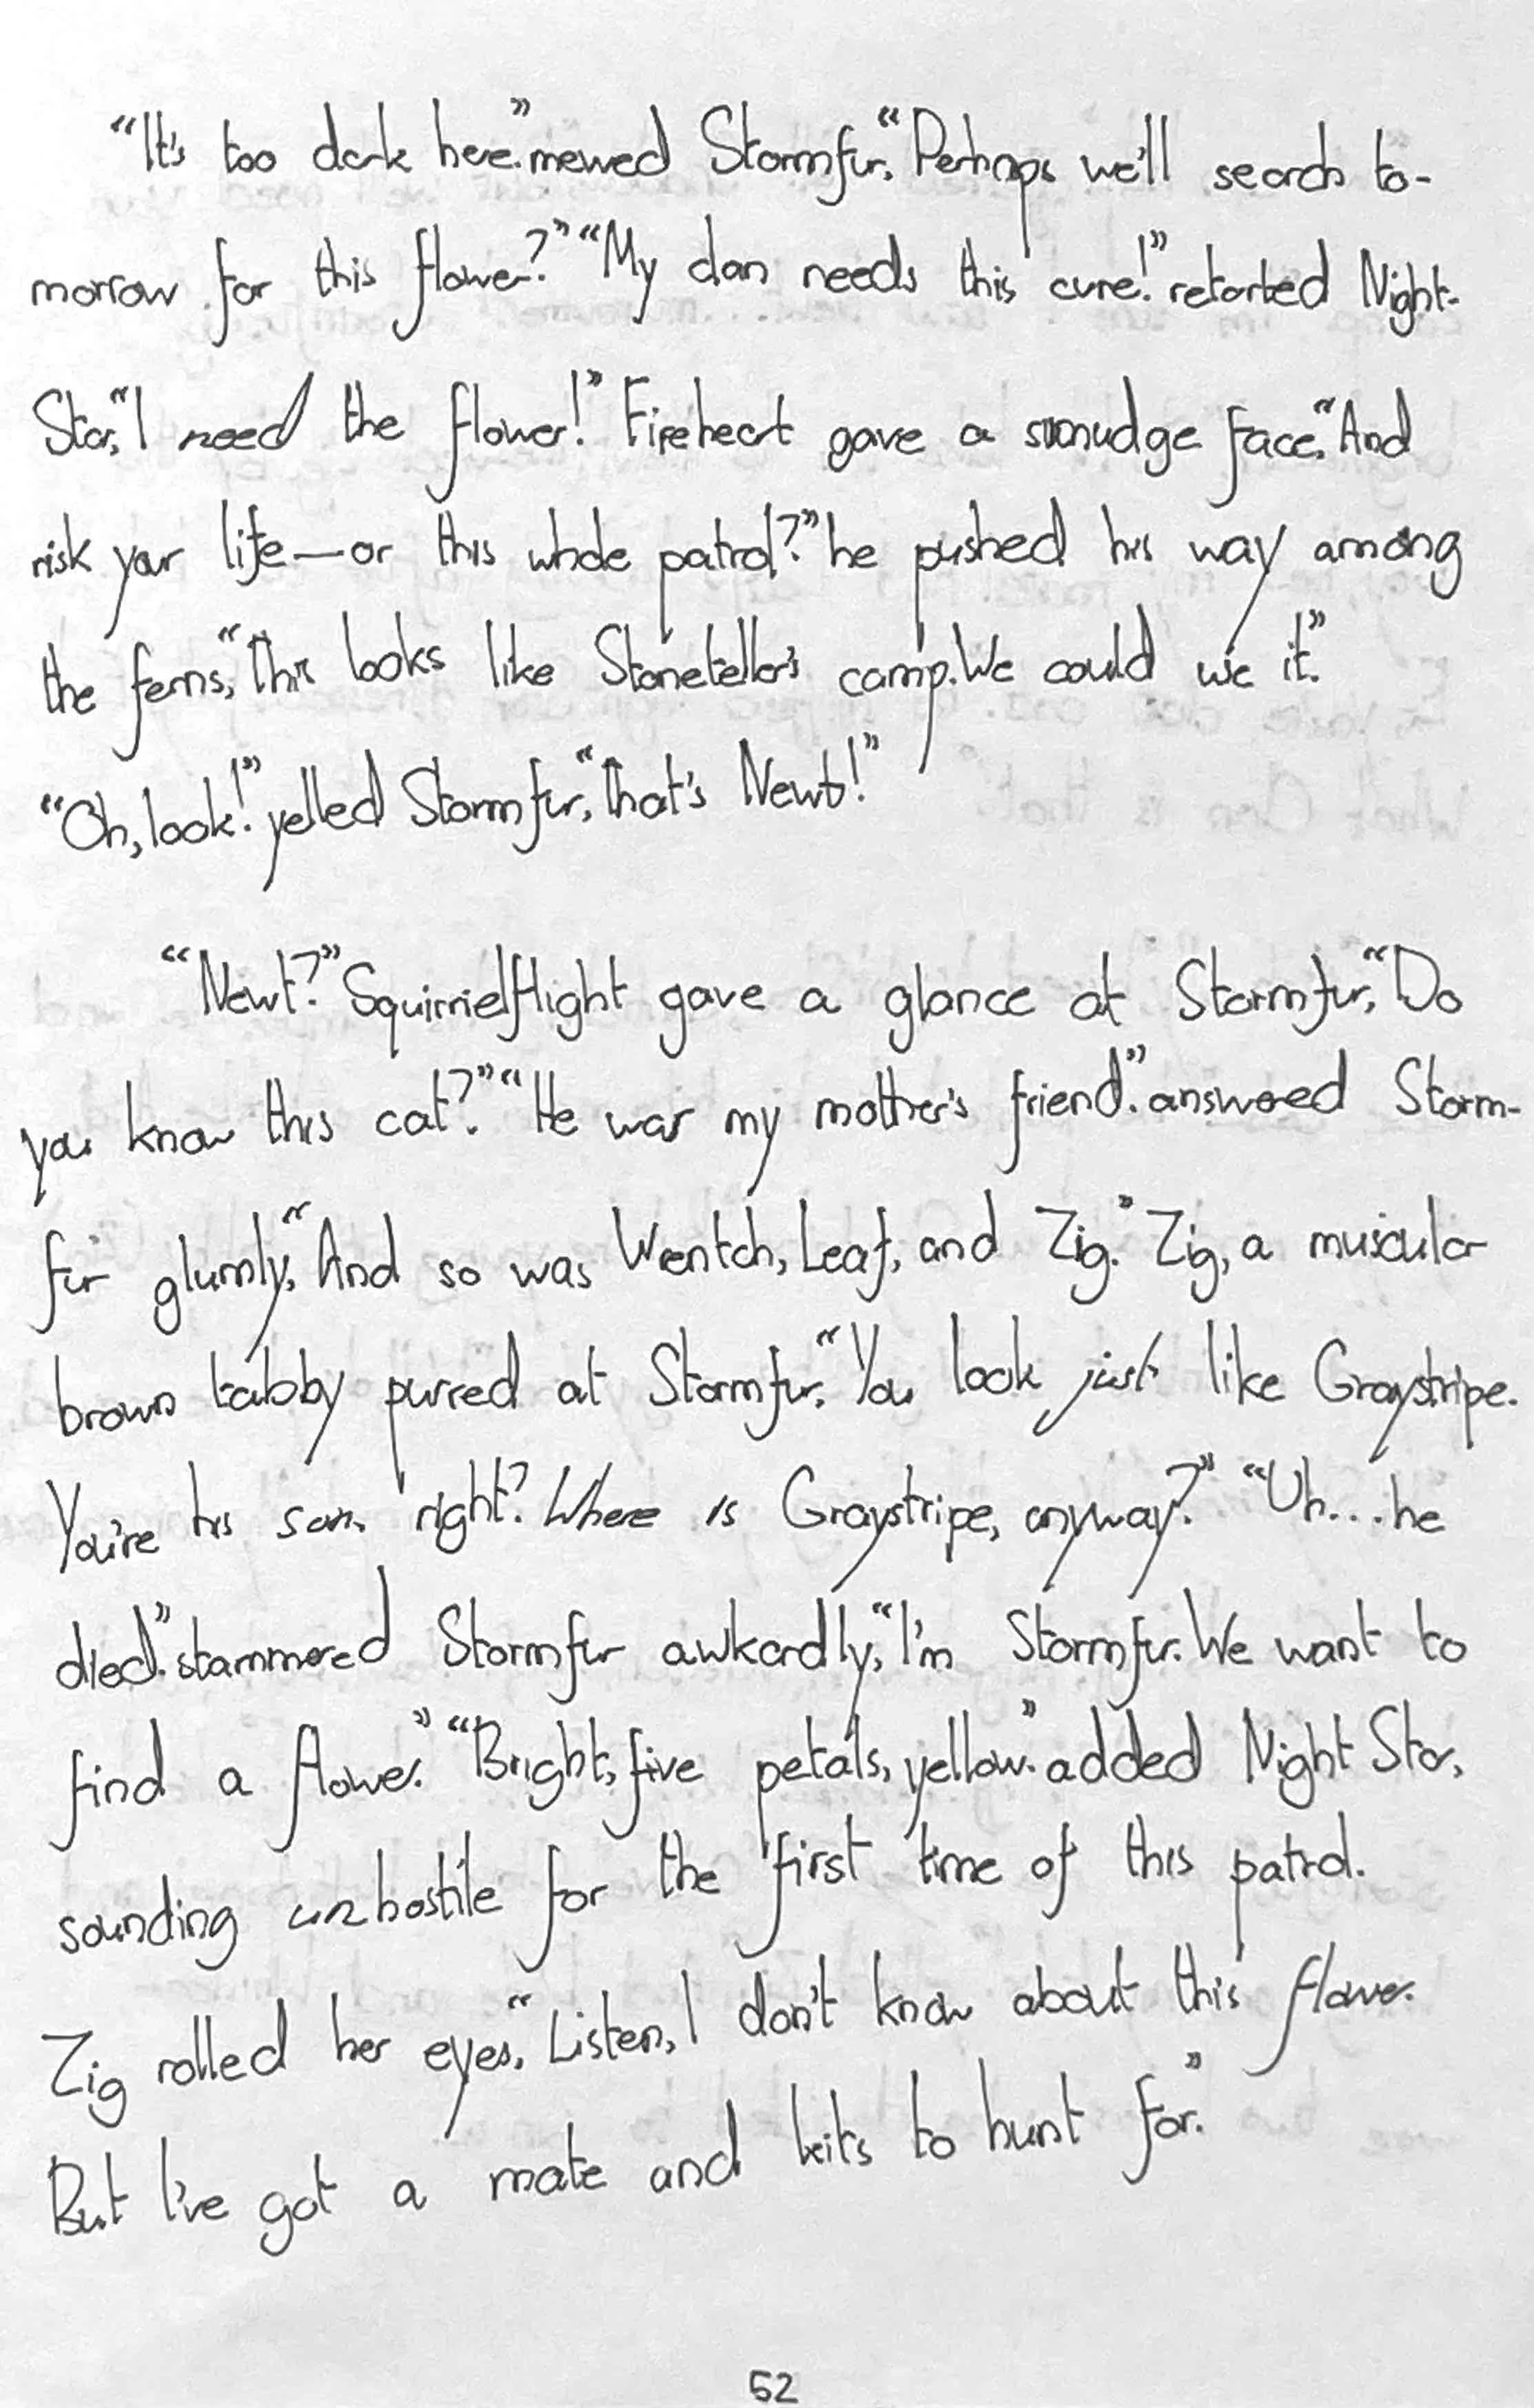 “It's too dark here.” mewed Stormfur, “Perhaps we'll search to-
morrow for this flower?” “My clan needs this cure!” retorted Night-
Star, “I need the flower!” Fireheart gave a smudge face, “And
risk your life—or this whole patrol?” he pushed his way among
the ferns, “This looks like Stoneteller's camp. We could use it.”
“Oh, look!” yelled Stormfur, “that's Newt!”
“Newt?” Squirrielflight gave a glance at Stormfur, “Do
you know this cat?” “He was my mother's friend.” answered Storm-
fur glumly, “And so was Wrentch, Leaf, and Zig.” Zig, a muscular
brown tabby purred at Stormfur, “You look just like Graystripe.
You're his son, right? Where is Graystripe, anyway?” “Uh...he
died.” stammered Stormfur awkardly, “I'm Stormfur. We want to
find a flower.” “Bright, five petals, yellow.” added Night Star,
sounding unhostile for the first time of this patrol.
Zig rolled her eyes, “Listen, I don't know about this flower.
But I've got a mate and kits to hunt for.”
52